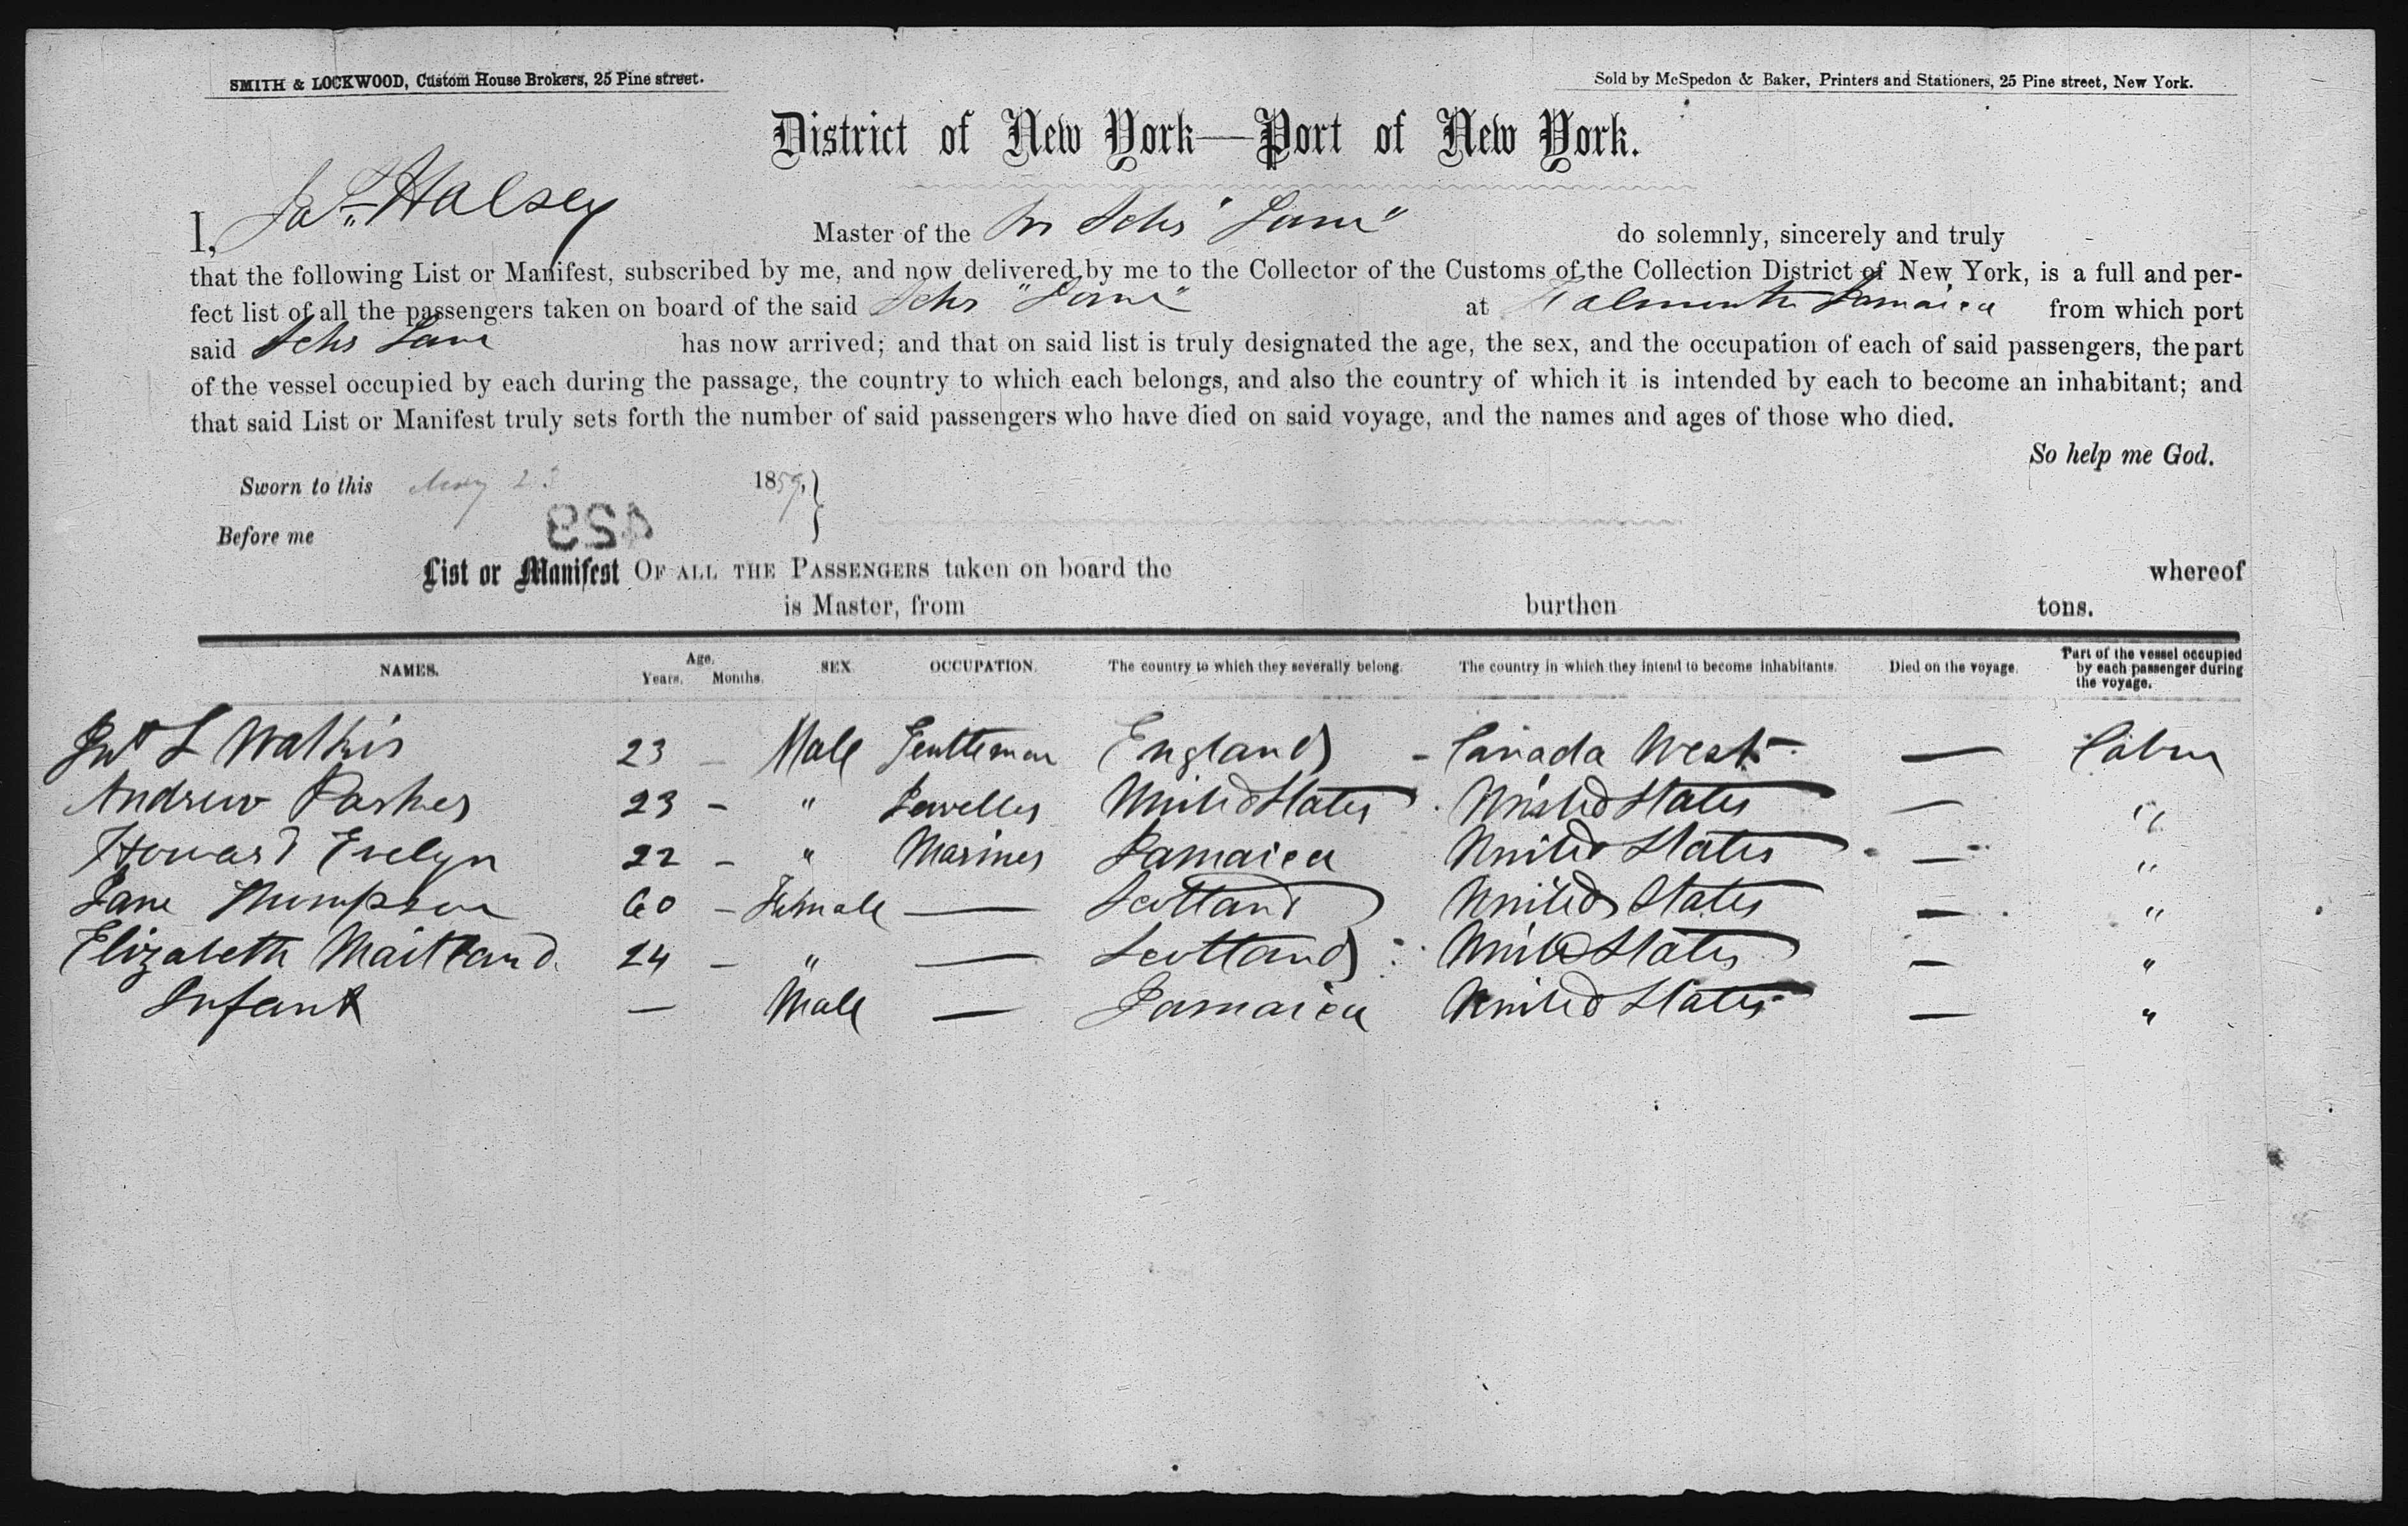 SMITH & LOCKWOOD, Custom House Brokers, 25 Pine street.
Sold by McSpedon & Baker, Printers and Stationers, 25 Pine street, New York.
District of New York—Port of New York.
I, Jas. Halsey Master of the Br Schr "Jane" do solemnly, sincerely and truly
that the following List or Manifest, subscribed by me, and now delivered by me to the Collector of the Customs of the Collection District of New York, is a full and per-
fect list of all the passengers taken on board of the said Schr "Jane" at Falmouth Jamaica from which port
said Schr Jane has now arrived; and that on said list is truly designated the age, the sex, and the occupation of each of said passengers, the part
of the vessel occupied by each during the passage, the country to which each belongs, and also the country of which it is intended by each to become an inhabitant; and
that said List or Manifest truly sets forth the number of said passengers who have died on said voyage, and the names and ages of those who died.
So help me God.
Sworn to this May 23 1859,
423
Before me
List or Manifest OF ALL THE PASSENGERS taken on board the whereof
is Master, from burthen tons.
NAMES. Age. Years. Months. SEX. OCCUPATION. The country to which they severally belong. The country in which they intend to become inhabitants. Died on the voyage. Part of the vessel occupied by each passenger during the voyage.
L Watkis 23 – Male Gentleman England – Canada West – — Cabin
Andrew Parker 23 – " Jeweller United States United States — "
Howard Evelyn 22 – " Mariner Jamaica United States — "
Jane Thompson 60 – Female — Scotland United States — "
Elizabeth Maitland 24 – " — Scotland United States — "
Infant — Male — Jamaica United States — "